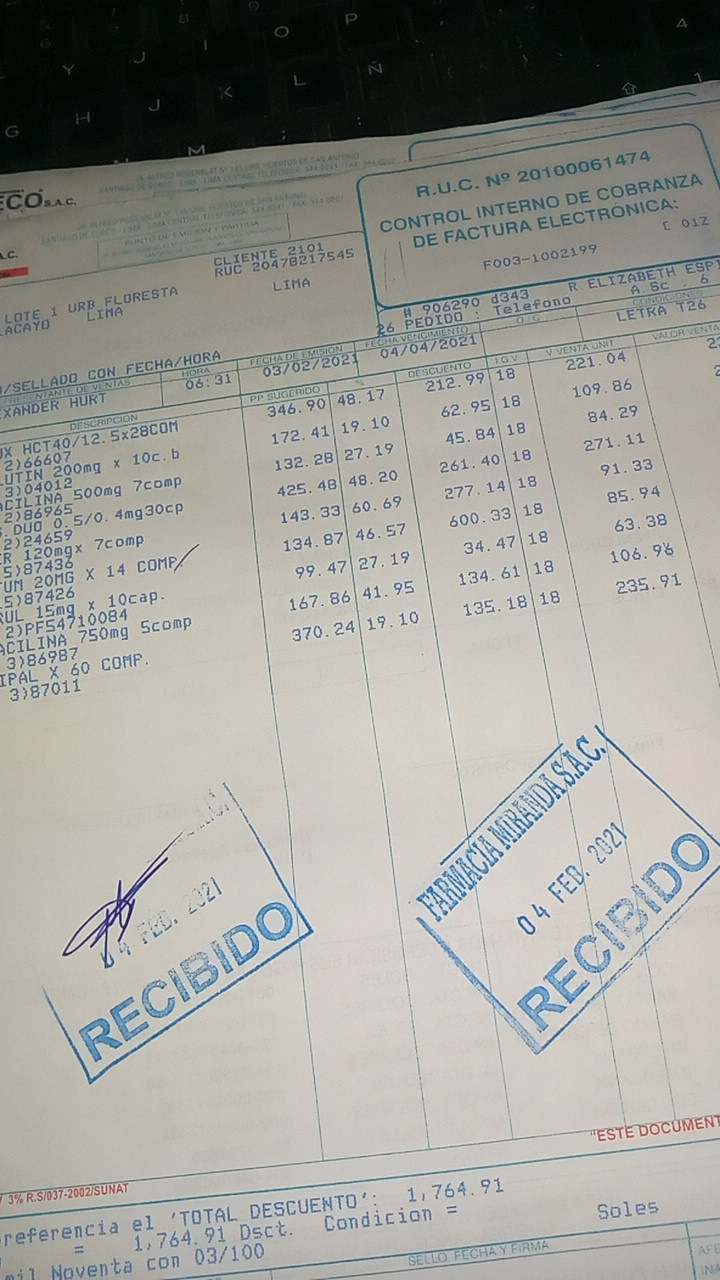 ECO S.A.C.
R.U.C. Nº 20100061474
CONTROL INTERNO DE COBRANZA
DE FACTURA ELECTRÓNICA:
F003-1002199
C 01Z
PUNTO DE EMISION Y PARTIDA
A.C.
CLIENTE 2101
RUC 20478217545
LOTE 1 URB FLORESTA
LIMA
LACAYO LIMA
# 906290 d343 R ELIZABETH ESPI
26 PEDIDO : Telefono A.Sc : 6
/SELLADO CON FECHA/HORA
REPRESENTANTE DE VENTAS
HORA
FECHA DE EMISIÓN
FECHA VENCIMIENTO
O/C
CONDICIONES
XANDER HURT
06:31
03/02/2021
04/04/2021
LETRA T26
DESCRIPCION
PP SUGERIDO
%
DESCUENTO
I.G.V
V.VENTA UNIT
VALOR VENTA
UX HCT40/12.5x28COM 346.90 48.17 212.99 18 221.04
2)66607
LUTIN 200mg x 10c.b 172.41 19.10 62.95 18 109.86
3)04012
ACILINA 500mg 7comp 132.28 27.19 45.84 18 84.29
2)86965
DUO 0.5/0.4mg30cp 425.48 48.20 261.40 18 271.11
2)24659
R 120mgx 7comp 143.33 60.69 277.14 18 91.33
5)87436
TUM 20MG X 14 COMP. 134.87 46.57 600.33 18 85.94
5)87426
RUL 15mg x 10cap. 99.47 27.19 34.47 18 63.38
2)PF54710084
ACILINA 750mg 5comp 167.86 41.95 134.61 18 106.96
3)86987
IPAL X 60 COMP. 370.24 19.10 135.18 18 235.91
3)87011
04 FEB. 2021
RECIBIDO
FARMACIA MIRANDA S.A.C.
04 FEB. 2021
RECIBIDO
"ESTE DOCUMENT
3% R.S/037-2002/SUNAT
referencia el 'TOTAL DESCUENTO': 1,764.91
= 1,764.91 Dsct. Condicion =
Soles
mil Noventa con 03/100
SELLO, FECHA Y FIRMA